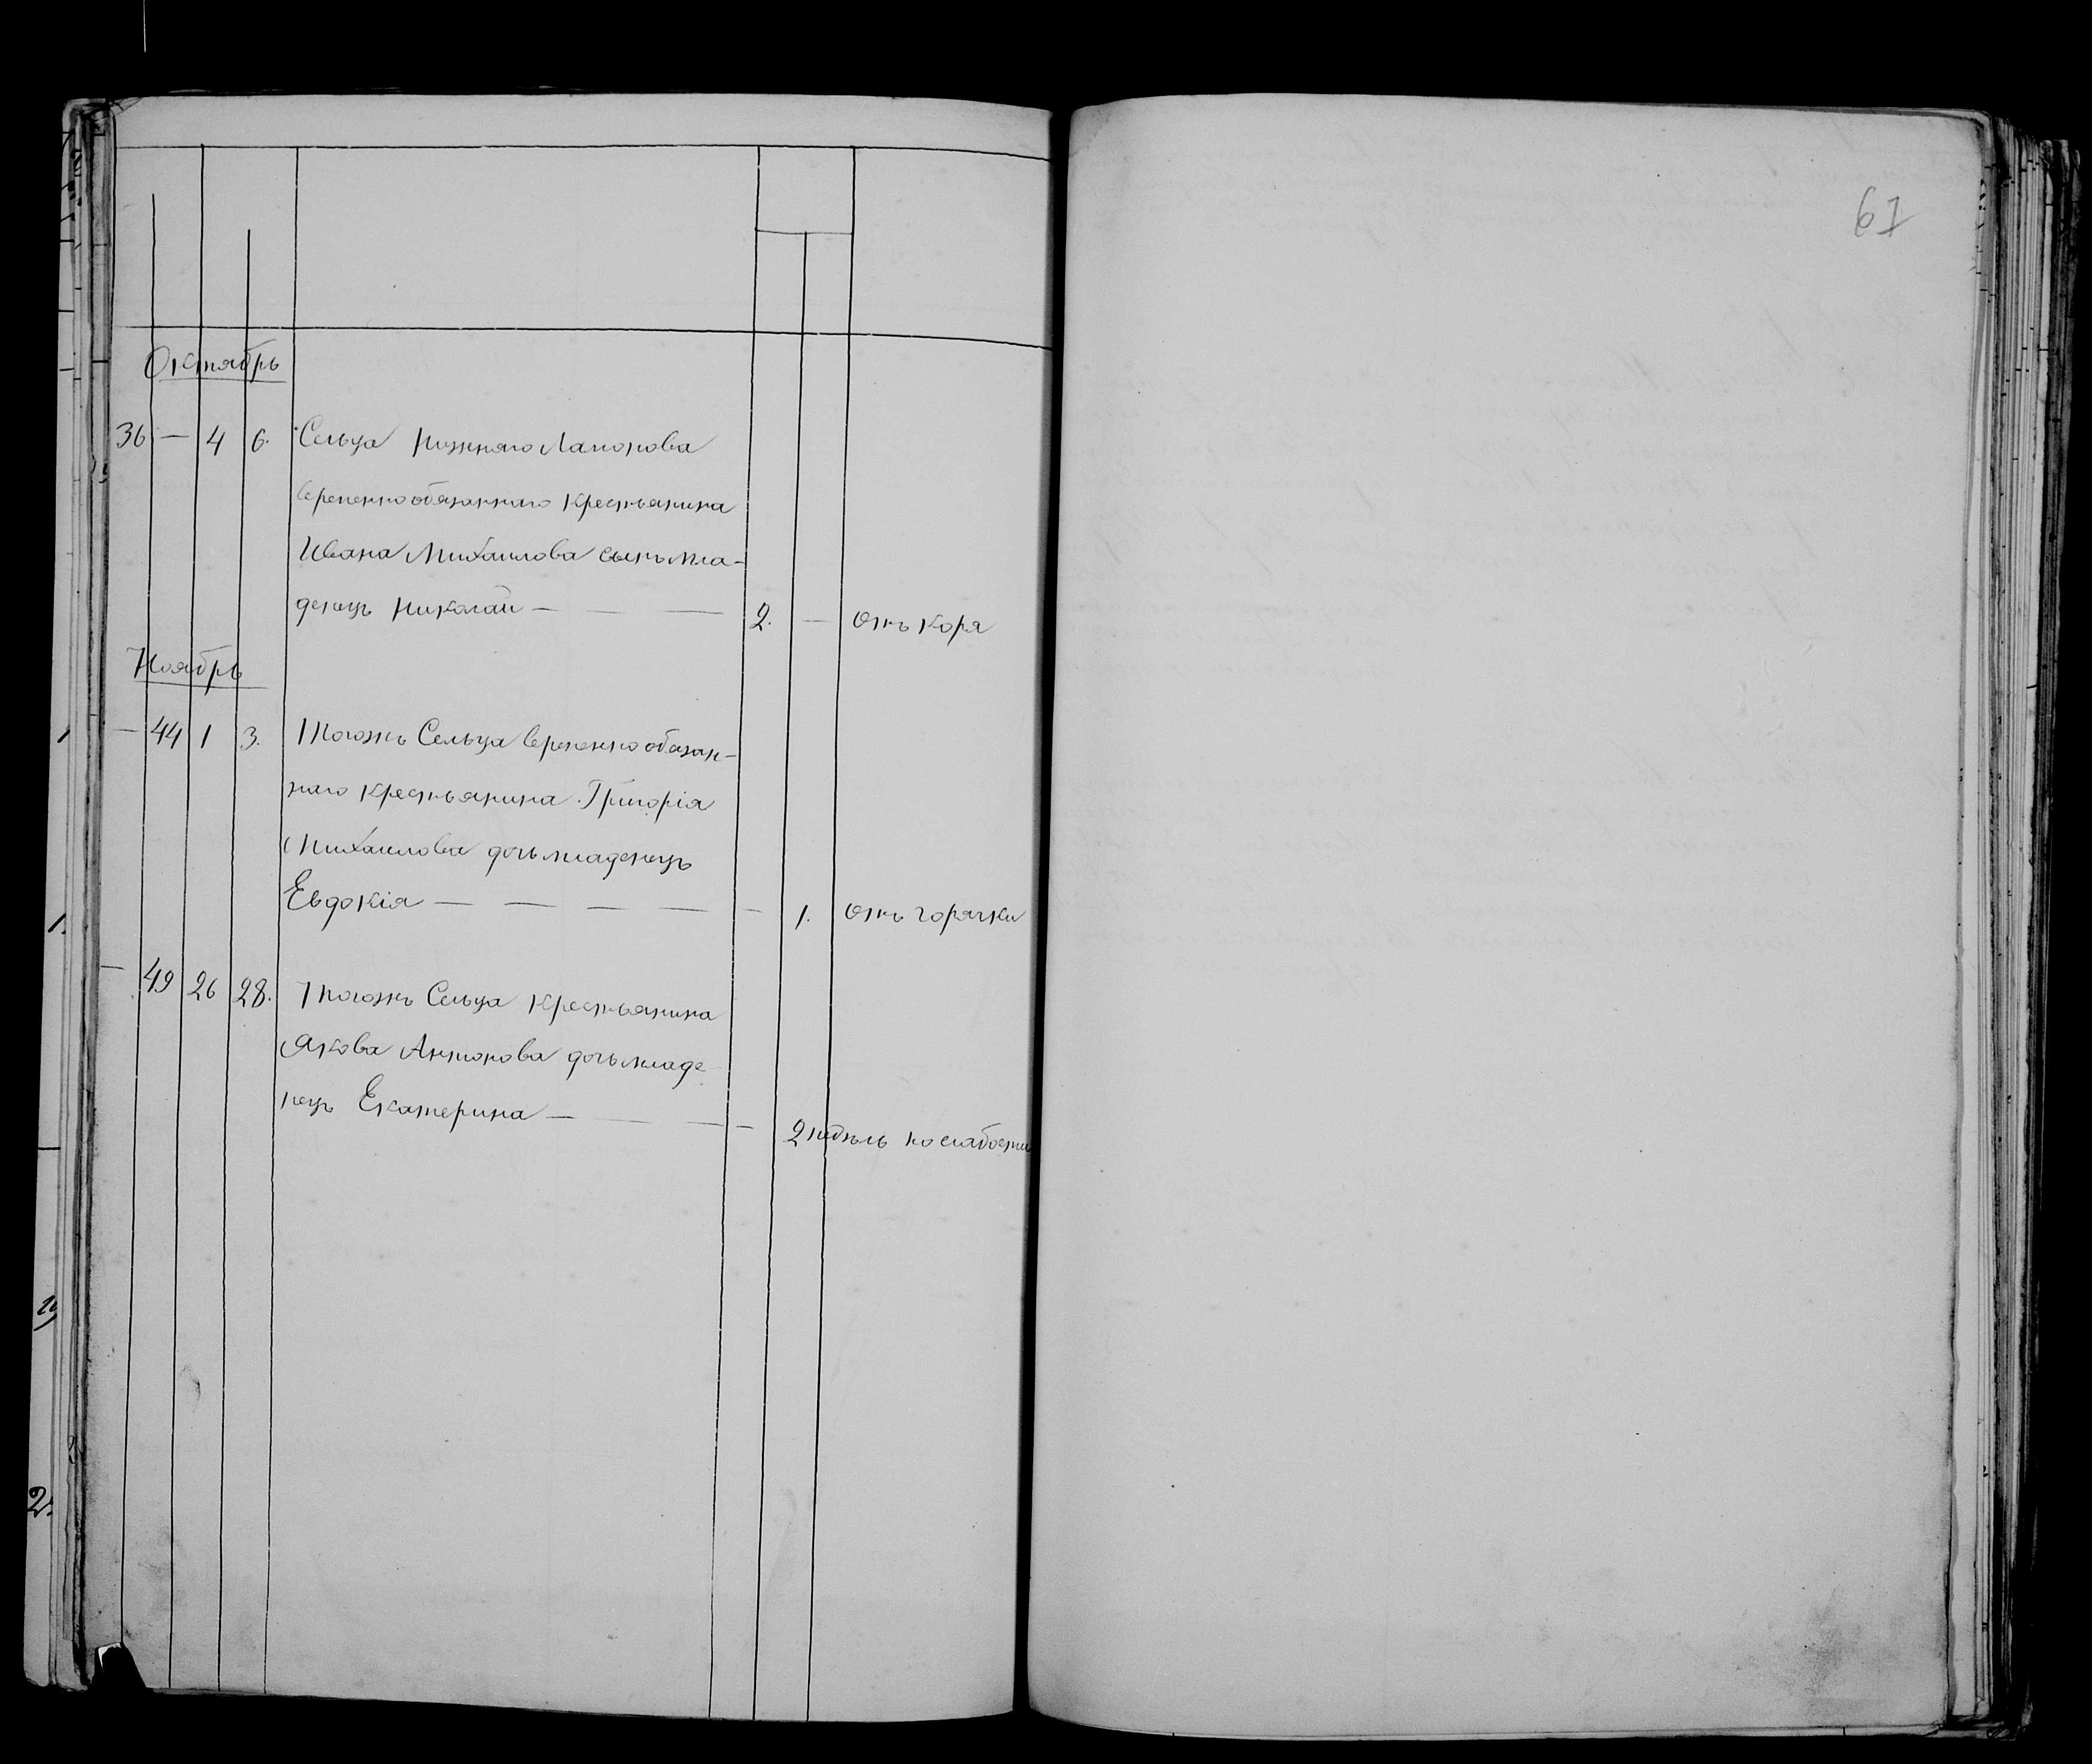 61
Октябрь
36 — 4 6. Сельца Нижняго Лапонова
временнообязаннаго крестьянина
Ивана Михаилова сынъ мла-
денецъ Николай — — — 2. — отъ коря
Ноябрь
— 44 1 3. Тогожъ Сельца временнообязан-
наго крестьянина Григорія
Михаилова дочь младенецъ
Евдокія — — — — — 1. отъ горячки
— 49 26 28. Тогожъ Сельца крестьянина
Якова Антонова дочь младе-
нецъ Екатерина — — — — 2 недель по слабости